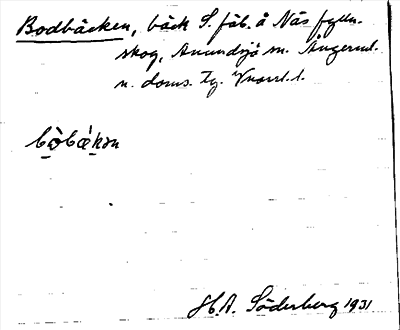 Bodbäcken, bäck S. fäb. å Näs fylln.
skog, Anundsjö sn. Ångerml.
n. doms. Tg. Vnorrl. l.
bo̱bæ̱kən
H.A. Söderberg 1931